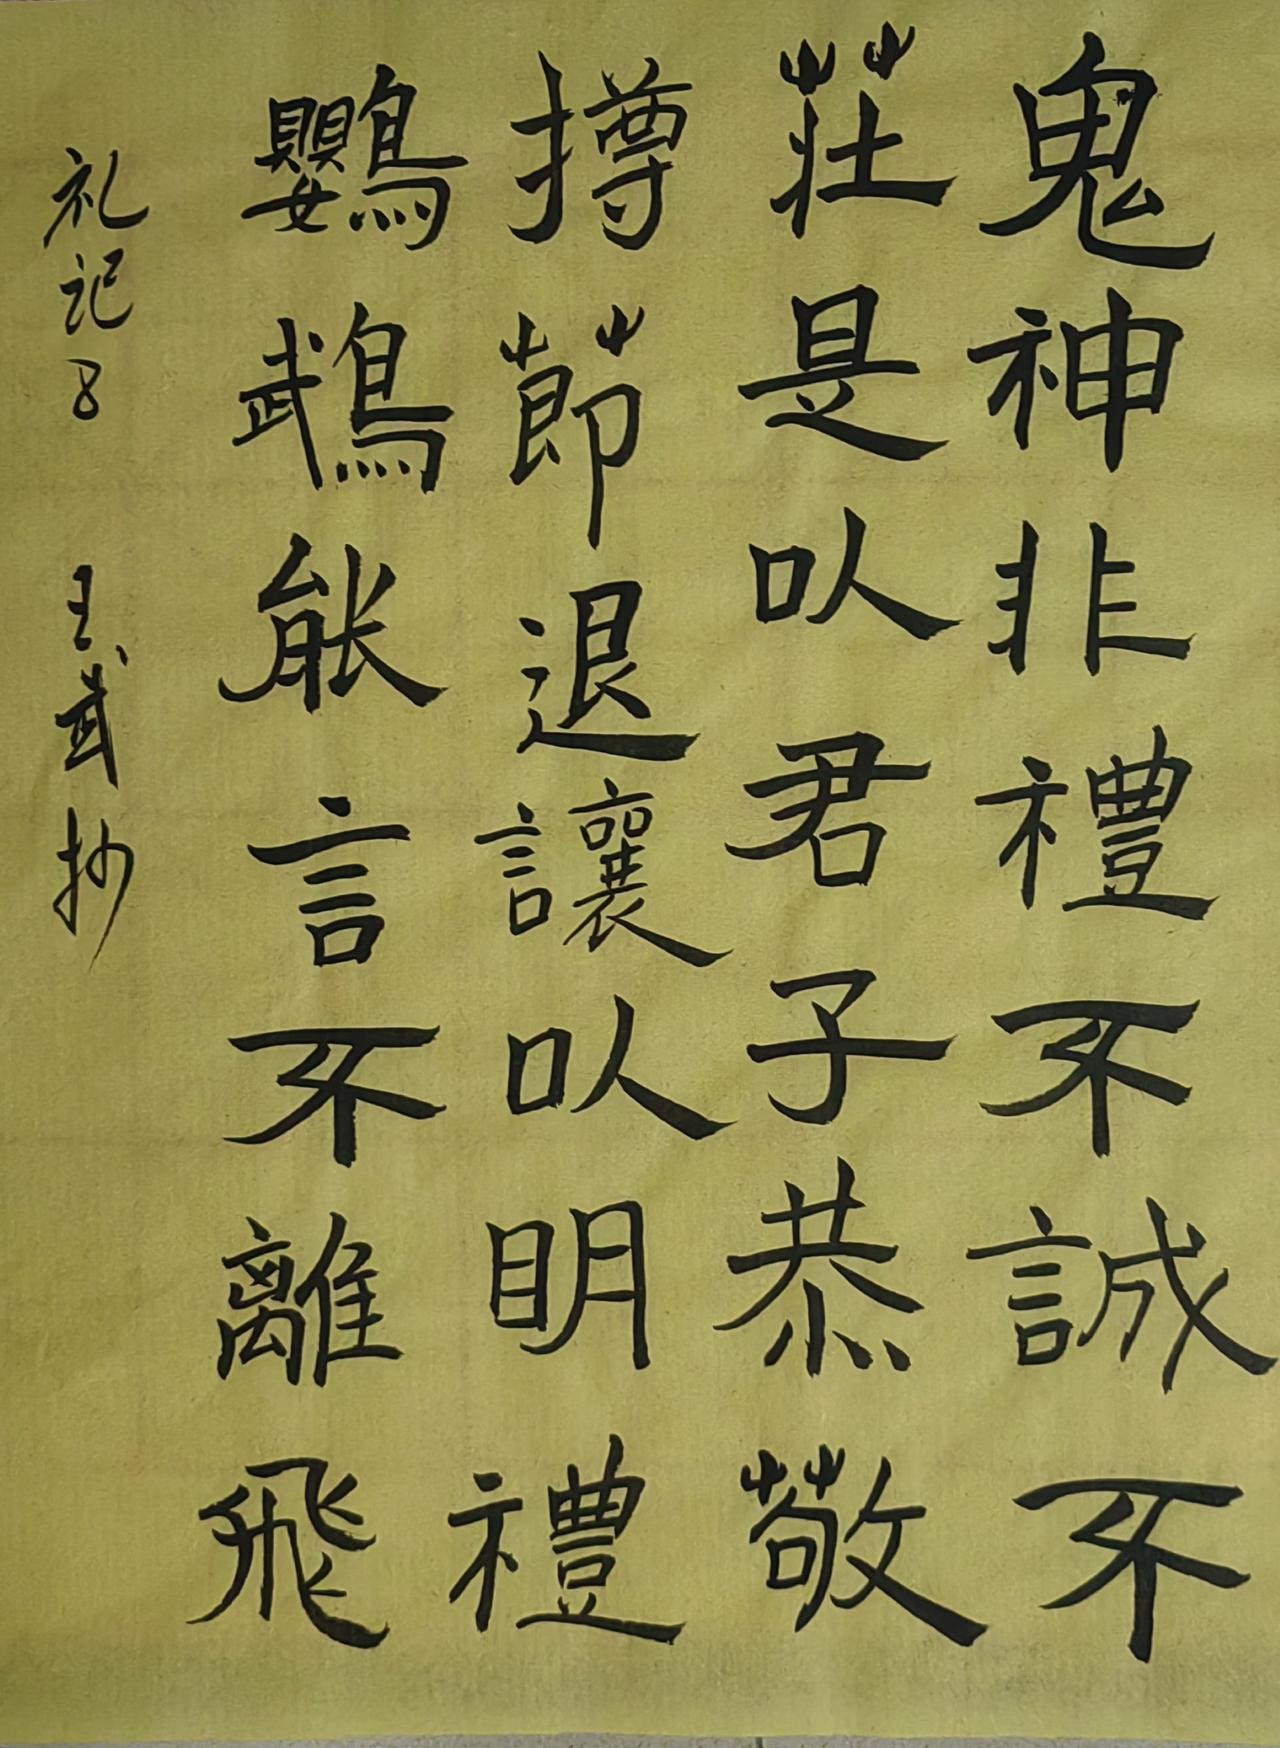 鬼神非禮不誠不
莊是以君子恭敬
撙節退讓以明禮
鸚鵡能言不離飛
礼记8 王武抄